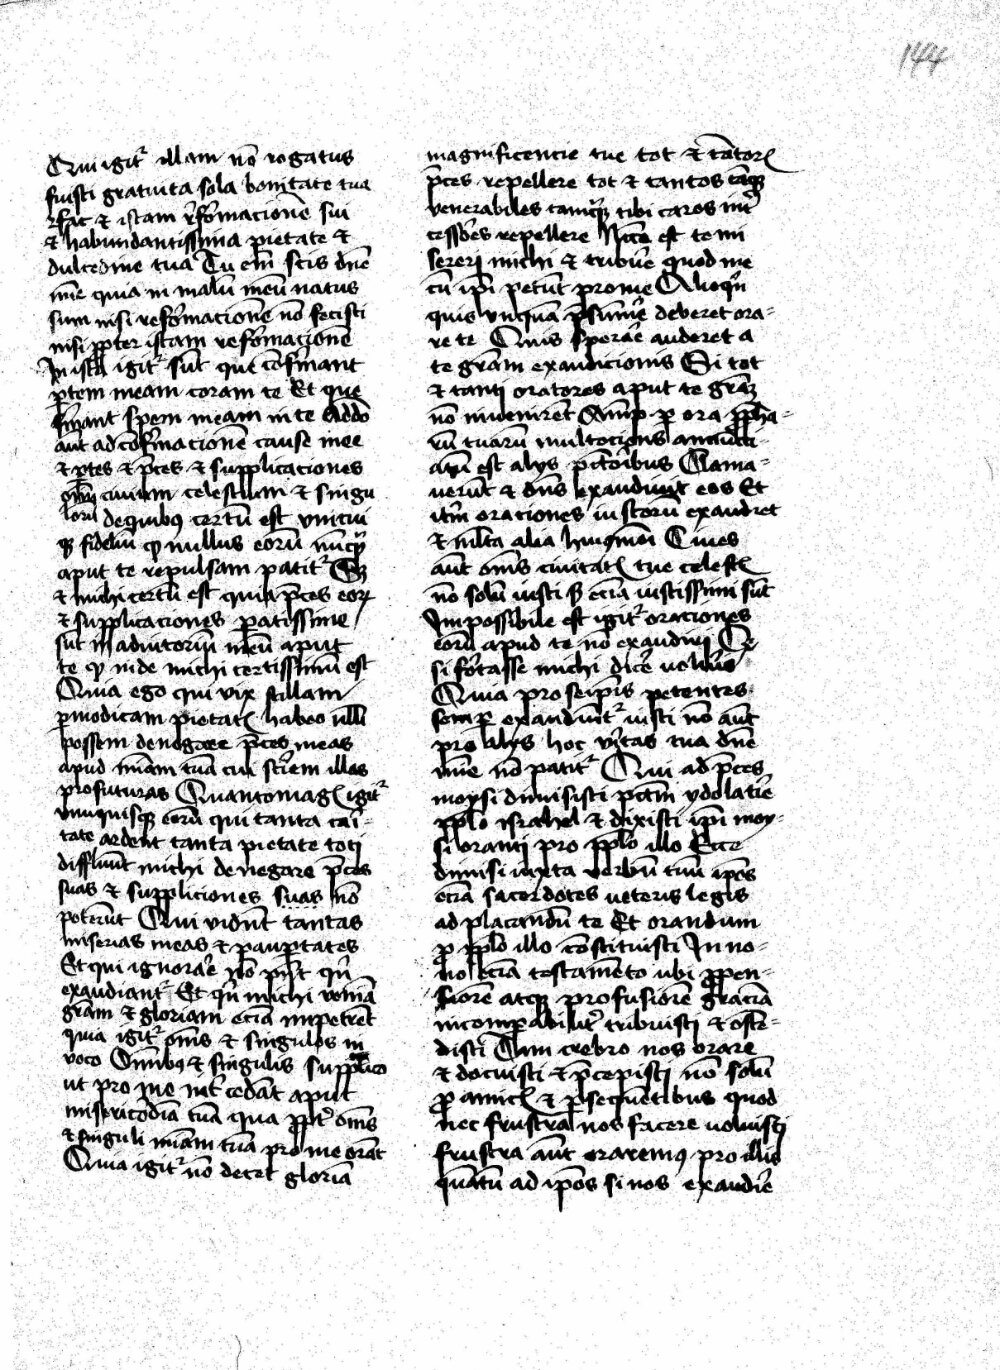 144
Qui igit᷑ illam nō rogatus
fuisti gratuita sola bonitate tua
p̱fic & istam rēfōrmacionē sui
& habundantissima pietate &
dulcedine tua Tu em̄ scis dn̄e
mē quia in malū meū natus
sum nisi reformacionē nō fecisti
nisi ꝓpter istam reformacionē
In ista igit᷑ sūt que cōfirmant
ꝑtem meam coram te Et que
firmant spem meam in te Addo
aūt ad cōfirmacionē cause mee
& p̄tes & p̄ces & supplicaciones
om̄iū ciuium celestium & singu
lorū de quibꝰ certū est vnicui
qꝫ fideliū ꝙ nullus eorū nūqꝫ
aput te repulsam patit᷑
& michi certū est quia p̄ces eoꝝ
& supplicaciones ꝑatissime
sūt in adiutoriū meū aput
te ꝙ inde michi certissimū est
Quia ego qui vix stillam
ꝑmodicam pietatꝭ habeo nll̄i
possem denegare p̄ces meas
apud miām tuā cui scirem illas
profuturas Quantomagꝭ igit᷑
vnusquisqꝫ eorū qui tanta cari-
tate ardent tanta pietate toti
diffluūt michi denegare p̄ces
suas & suppliciones suas nō
poterūt Qui vidēt tantas
miserias meas & pauꝑtates
Et qui ignorare nō pn̄t qn̄
exaudiant᷑ Et qn̄ michi veniā
grām & gloriam eciā impetrēt
quia igit᷑ om̄s & singulos in
voco Om̄ibꝰ & singulis supplico
ut pro me int᷑cedāt aput
misericordiā tuā qua ꝓpt᷑ om̄s
& singuli miām tuā pro me orāt
Quia igit᷑ nō decet gloriā
magnificencie tue tot & tātoꝝ
p̄ces repellere tot & tantos tāqꝫ
venerabiles tamqꝫ tibi caros int᷑
cessores repellere est te mi
sereri michi & tribuē quod me
cū ip̄i petūt pro me Alioqn̄
quis vnquā p̄sumē deberet ora-
re te Quis sperare auderet a
te grām exaudicionis Si tot
& tanti oratores aput te grām
nō inuenirēt ꝑ ora ꝓpha-
rū tuarū multociens annūcci-
atū est alijs pctōribus Clama-
uerūt & dn̄s exaudiuit eos Et
itm̄ oraciones iustorū exaudiet
& ml̄ta alia huiusmōi Ciues
aūt om̄s ciuitatꝭ tue celestꝭ
nō solū iusti sꝫ eciā iustissimi sūt
Impossibile est igit᷑ oraciones
eorū apud te nō exaudiri
si fortasse michi dicē uoluis
Quia pro seip̄is petentes
semꝑ exaudiūt᷑ iusti nō aūt
pro alijs hoc v̄itas tua dn̄e
mē nō patit᷑ Qui ad p̄ces
moysi dimisisti pctm̄ ydolatrie
ppl̄o israhel & dixisti ip̄i moy-
si oranti pro ppl̄o illo Ecce
dimisi iuxta verbū tuū ip̄os
eciā sacerdotes ueteris legis
ad placandū te Et orandum
ꝓ ppl̄o illo cōstituisti In no-
uo eciā testamēto ubi ꝓpen-
siorē atqꝫ profusiorē graciā
incomꝑabilit᷑ tribuisti & oste-
disti Cum crebro nos orare
& docuisti & p̄cepisti nō solū
ꝓ amicꝭ & ꝑsequētibus quod
nec frustra nos facere uoluisti
frustra aūt oraremꝰ pro illis
quātū ad ip̄os si nos exaudire